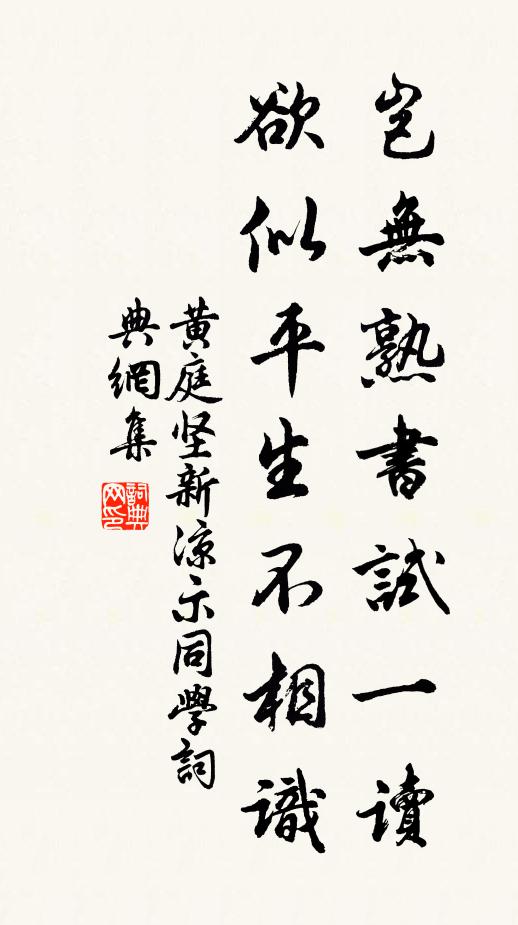 豈無熟書試一讀
欲似平生不相識
黃庭坚新涼示同學詞
典網集
詞典
网印